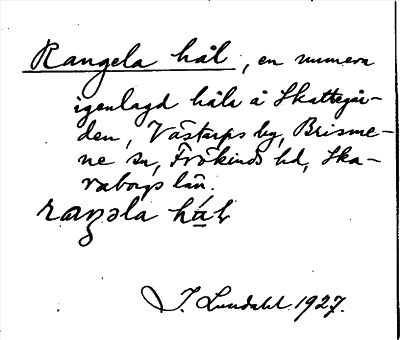 Rangela hål, en numera
igenlagd håla å Skattegår-
den, Västarps by, Brisme-
ne sn, Frökinds hd, Ska-
raborgs län.
raŋəla hå̀l
J. Lundahl 1927.